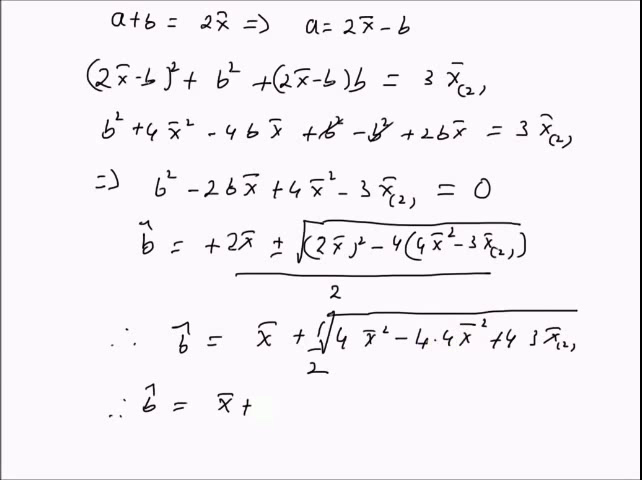 a+b = 2x̄ => a = 2x̄ - b
(2x̄-b)² + b² + (2x̄-b)b = 3x̄₍₂₎
b² + 4x̄² - 4bx̄ + b² - b² + 2bx̄ = 3x̄₍₂₎
=> b² - 2bx̄ + 4x̄² - 3x̄₍₂₎ = 0
b̂ = +2x̄ ± √((2x̄)² - 4(4x̄² - 3x̄₍₂₎))
2
∴ b̂ = x̄ + 1/2 √(4x̄² - 4·4x̄² + 4 3x̄₍₂₎
∴ b̂ = x̄ +